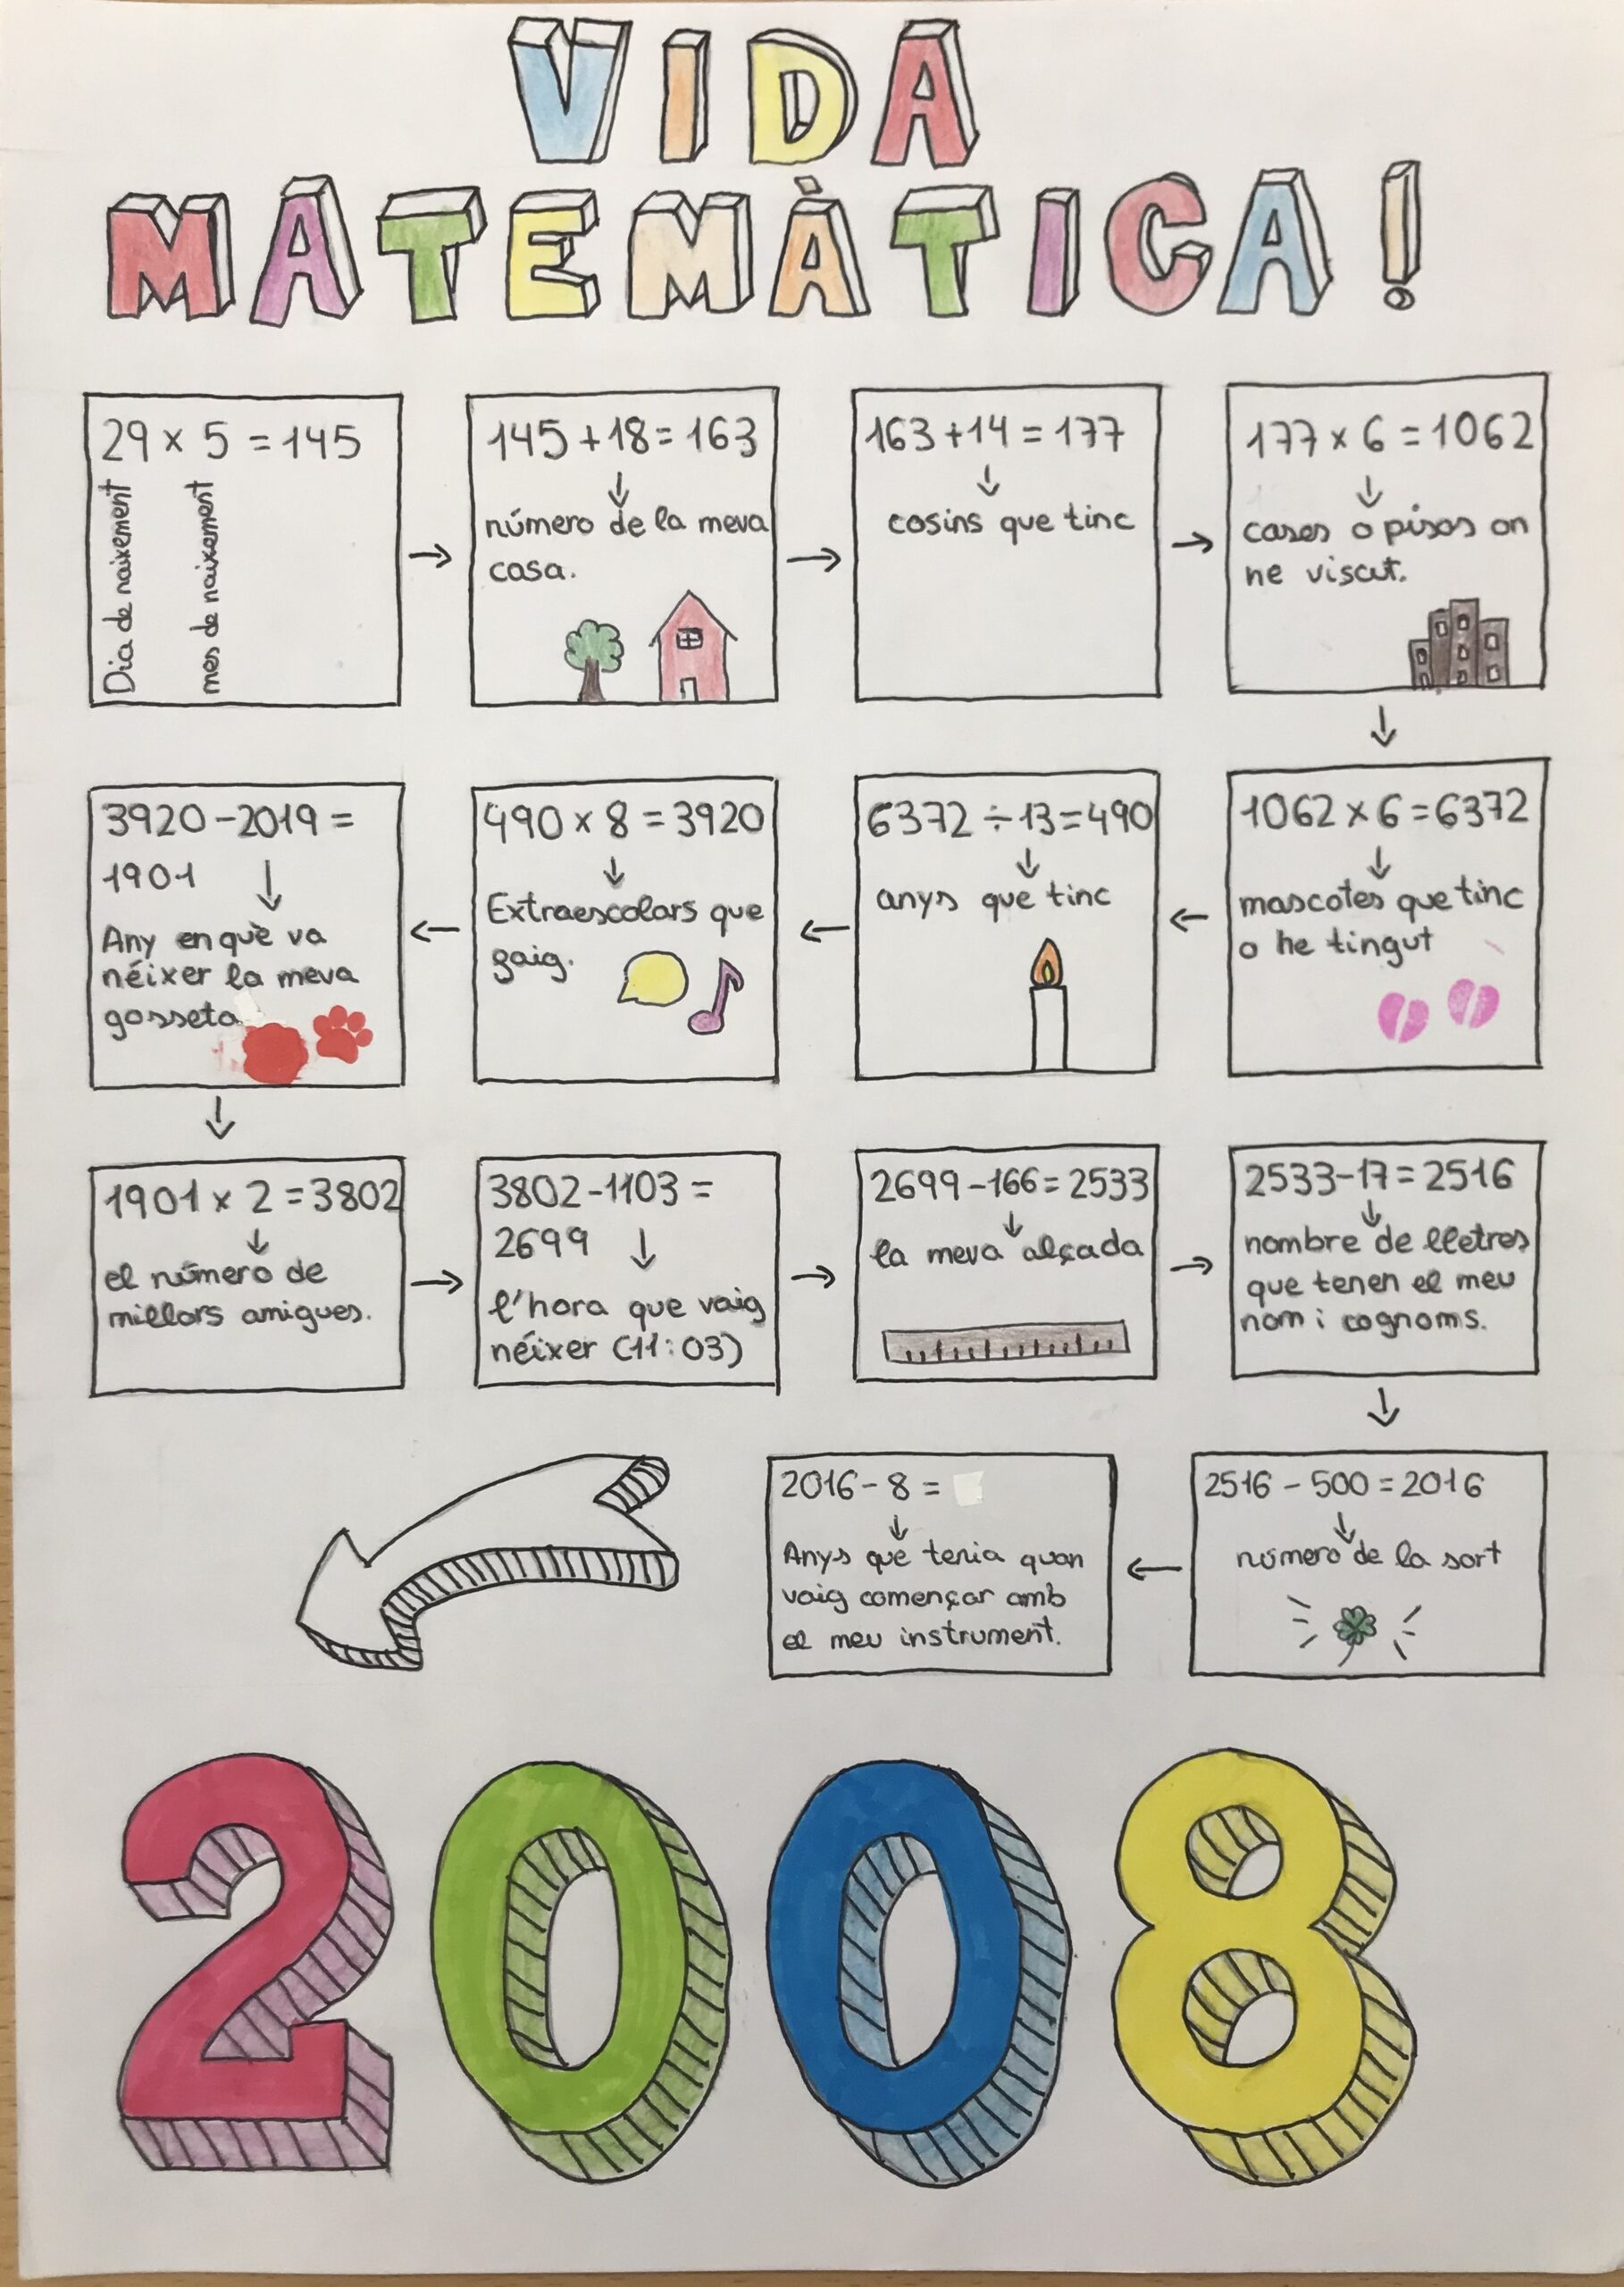 VIDA
MATEMÀTICA!
29 x 5 = 145
Dia de naixement
mes de naixement
145 + 18 = 163
número de la meva
casa.
163 + 14 = 177
cosins que tinc
177 x 6 = 1062
cases o pisos on
he viscut.
1062 x 6 = 6372
mascotes que tinc
o he tingut
6372 ÷ 13 = 490
anys que tinc
490 x 8 = 3920
Extraescolars que
gaig.
3920 - 2019 =
1901
Any en què va
néixer la meva
gosseta
1901 x 2 = 3802
el número de
millors amigues.
3802 - 1103 =
2699
l'hora que vaig
néixer (11:03)
2699 - 166 = 2533
la meva alçada
2533 - 17 = 2516
nombre de lletres
que tenen el meu
nom i cognoms.
2516 - 500 = 2016
número de la sort
2016 - 8 =
Anys que tenia quan
vaig començar amb
el meu instrument.
2008